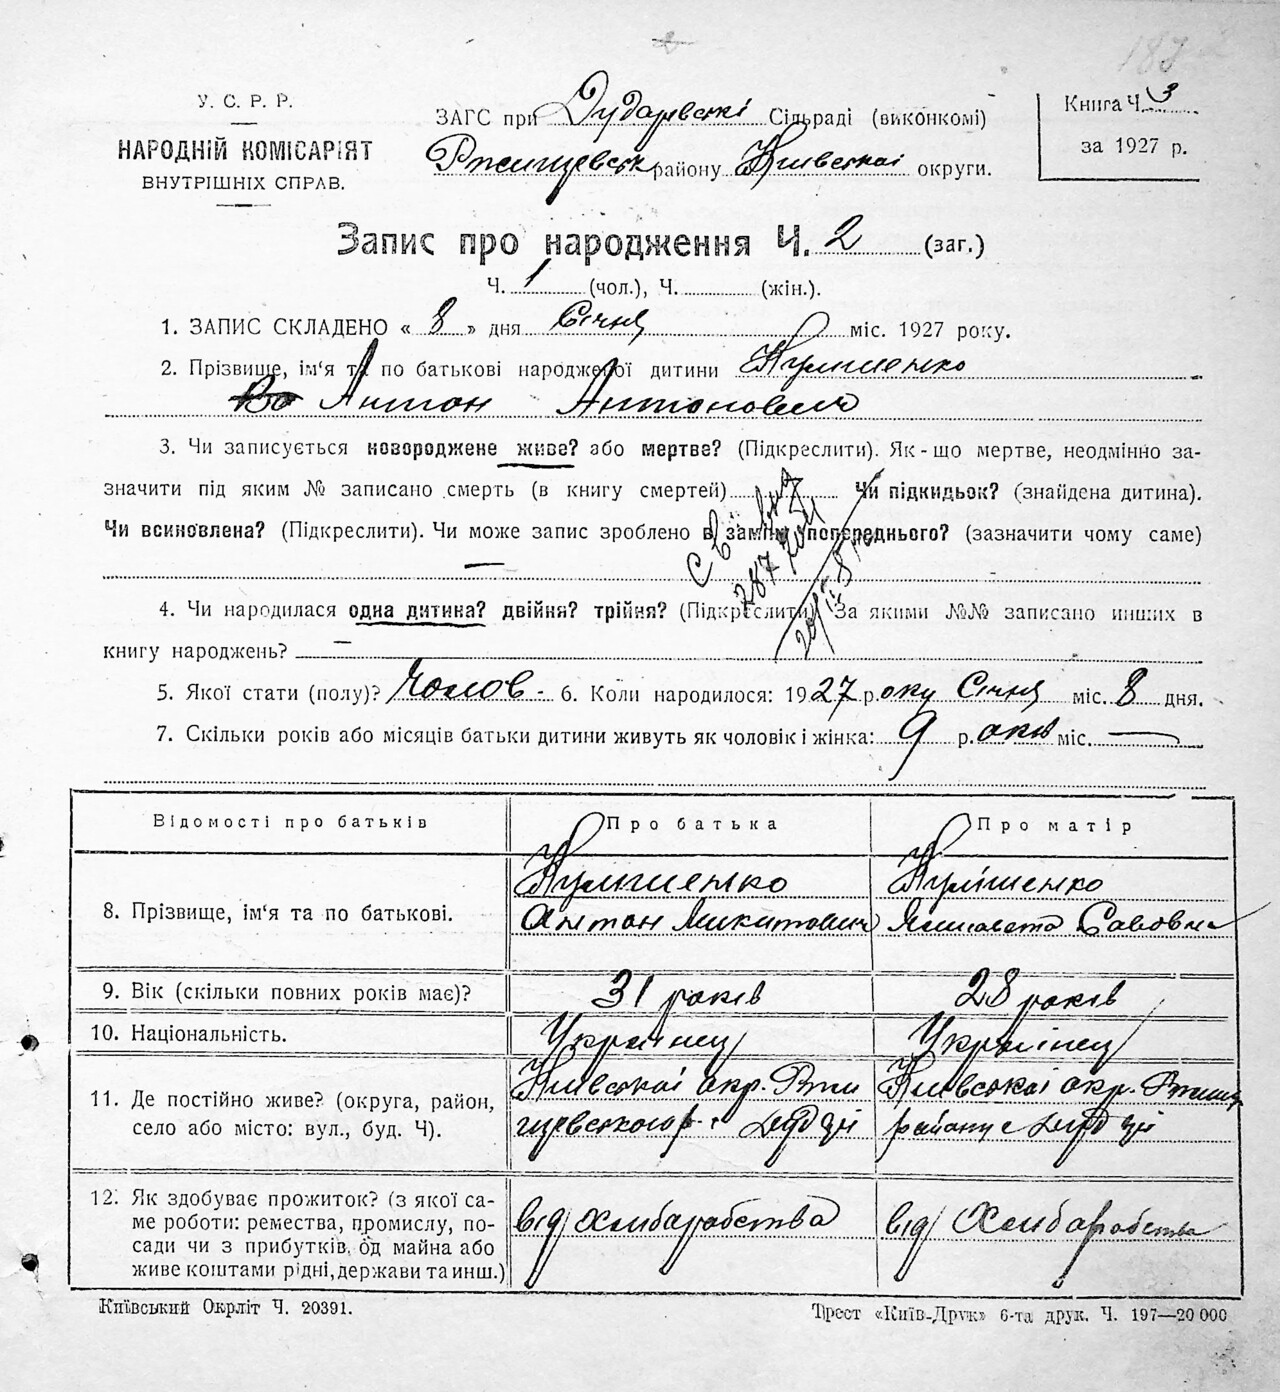 У. С. Р. Р.
НАРОДНІЙ КОМІСАРІЯТ
ВНУТРІШНІХ СПРАВ.
ЗАГС при Дударівскі Сільраді (виконкомі)
Ржищевськ району Київскої округи.
Книга Ч. 3
за 1927 р.
Запис про народження Ч. 2 (заг.)
Ч. 1 (чол.), Ч. (жін.).
1. ЗАПИС СКЛАДЕНО « 8 » дня Січня міс. 1927 року.
2. Прізвище, ім'я та по батькові народженої дитини Кулішенко
Антон Антонович
3. Чи записується новороджене живе? або мертве? (Підкреслити). Як-що мертве, неодмінно за-
значити під яким № записано смерть (в книгу смертей) Чи підкидьок? (знайдена дитина).
Чи всиновлена? (Підкреслити). Чи може запис зроблено в замін попереднього? (зазначити чому саме)
4. Чи народилася одна дитина? двійня? трійня? (Підкреслити) За якими №№ записано инших в
книгу народжень? —
5. Якої стати (полу)? Чолов- 6. Коли народилося: 1927 року Січня міс. 8 дня.
7. Скільки років або місяців батьки дитини живуть як чоловік і жінка: 9 років міс. —
Відомості про батьків Про батька Про матір
8. Прізвище, ім'я та по батькові.
Кулішенко
Антон Микитович
Кулішенко
Савовна
9. Вік (скільки повних років має)? 31 років 28 років
10. Національність. Українец Українец
11. Де постійно живе? (округа, район,
село або місто: вул., буд. Ч).
Київської окр. Ржи
щевського р.
Київської окр. Ржищ
району с
12. Як здобуває прожиток? (з якої са-
ме роботи: ремества, промислу, по-
сади чи з прибутків од майна або
живе коштами рідні, держави та инш.)
від Хлибаробства
від Хлибаробства
Київський Окрліт Ч. 20391.
Трест «Київ-Друк» 6-та друк. Ч. 197—20 000